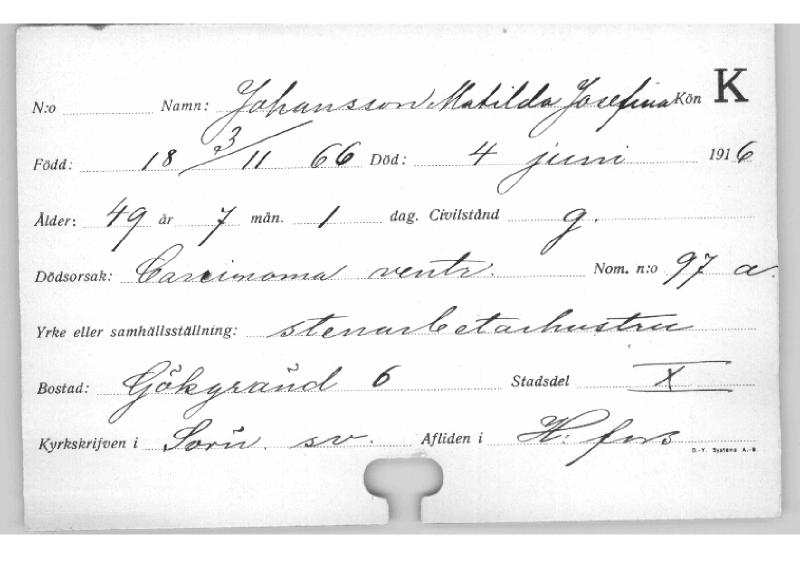 N:o Namn: Johansson Matilda Josefina Kön K
Född: 18 3/11 66 Död: 4 juni 1916
Ålder: 49 år 7 mån. 1 dag. Civilstånd g.
Dödsorsak: Carcinoma ventr. Nom. n:o 97 a.
Yrke eller samhällsställning: stenarbetarhustru
Bostad: Gökgränd 6 Stadsdel X
Kyrkskrifven i Sörn. sv. Afliden i H:fors
D.-Y. Systema A.-B.